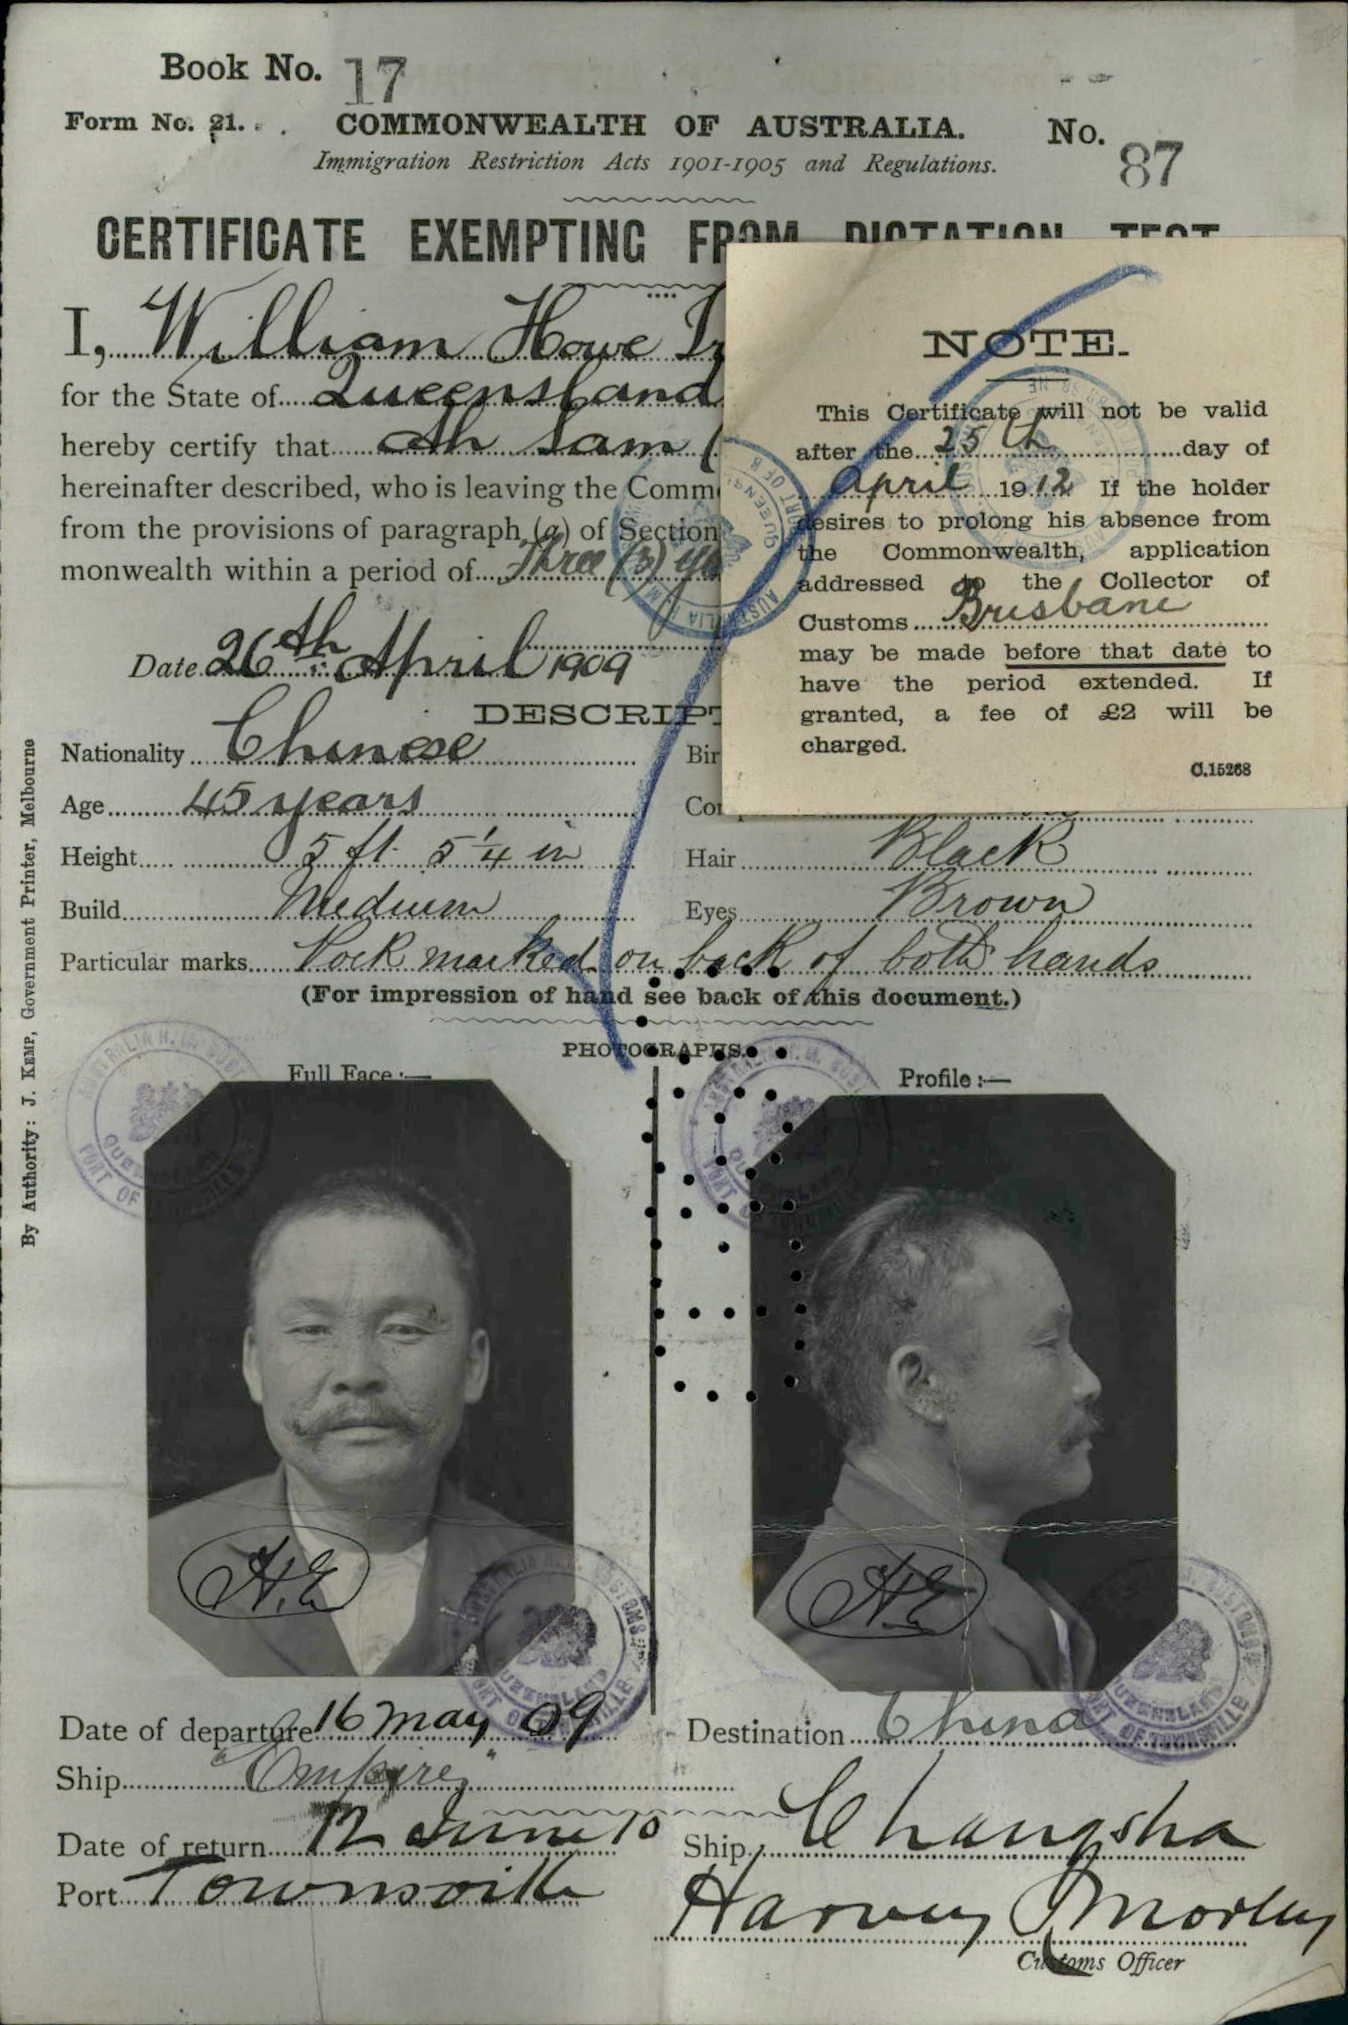 Book No. 17
Form No. 21. COMMONWEALTH OF AUSTRALIA. No. 87
Immigration Restriction Acts 1901-1905 and Regulations.
CERTIFICATE EXEMPTING FROM DICTATION TEST
I, William Howe
for the State of Queensland
hereby certify that Ah Sam (
hereinafter described, who is leaving the Comm
from the provisions of paragraph (a) of Section
monwealth within a period of Three (3) ye
Date 26th April 1909
NOTE.
This Certificate will not be valid
after the 25th day of
April 1912 If the holder
desires to prolong his absence from
the Commonwealth, application
addressed to the Collector of
Customs Brisbane
may be made before that date to
have the period extended. If
granted, a fee of £2 will be
charged.
C.15268
DESCRIPT
Nationality Chinese Bir
Age 45 years Co
Height 5 ft. 5 1/4 in Hair Black
Build Medium Eyes Brown
Particular marks Pock marked on back of both hands
(For impression of hand see back of this document.)
PHOTOGRAPHS.
Full Face :— Profile :—
H.E
H.E
Date of departure 16 May 09 Destination China
Ship "Empire"
Date of return 12 June 10 Ship Changsha
Port Townsville Harvey Morley
Customs Officer
By Authority: J. KEMP, Government Printer, Melbourne